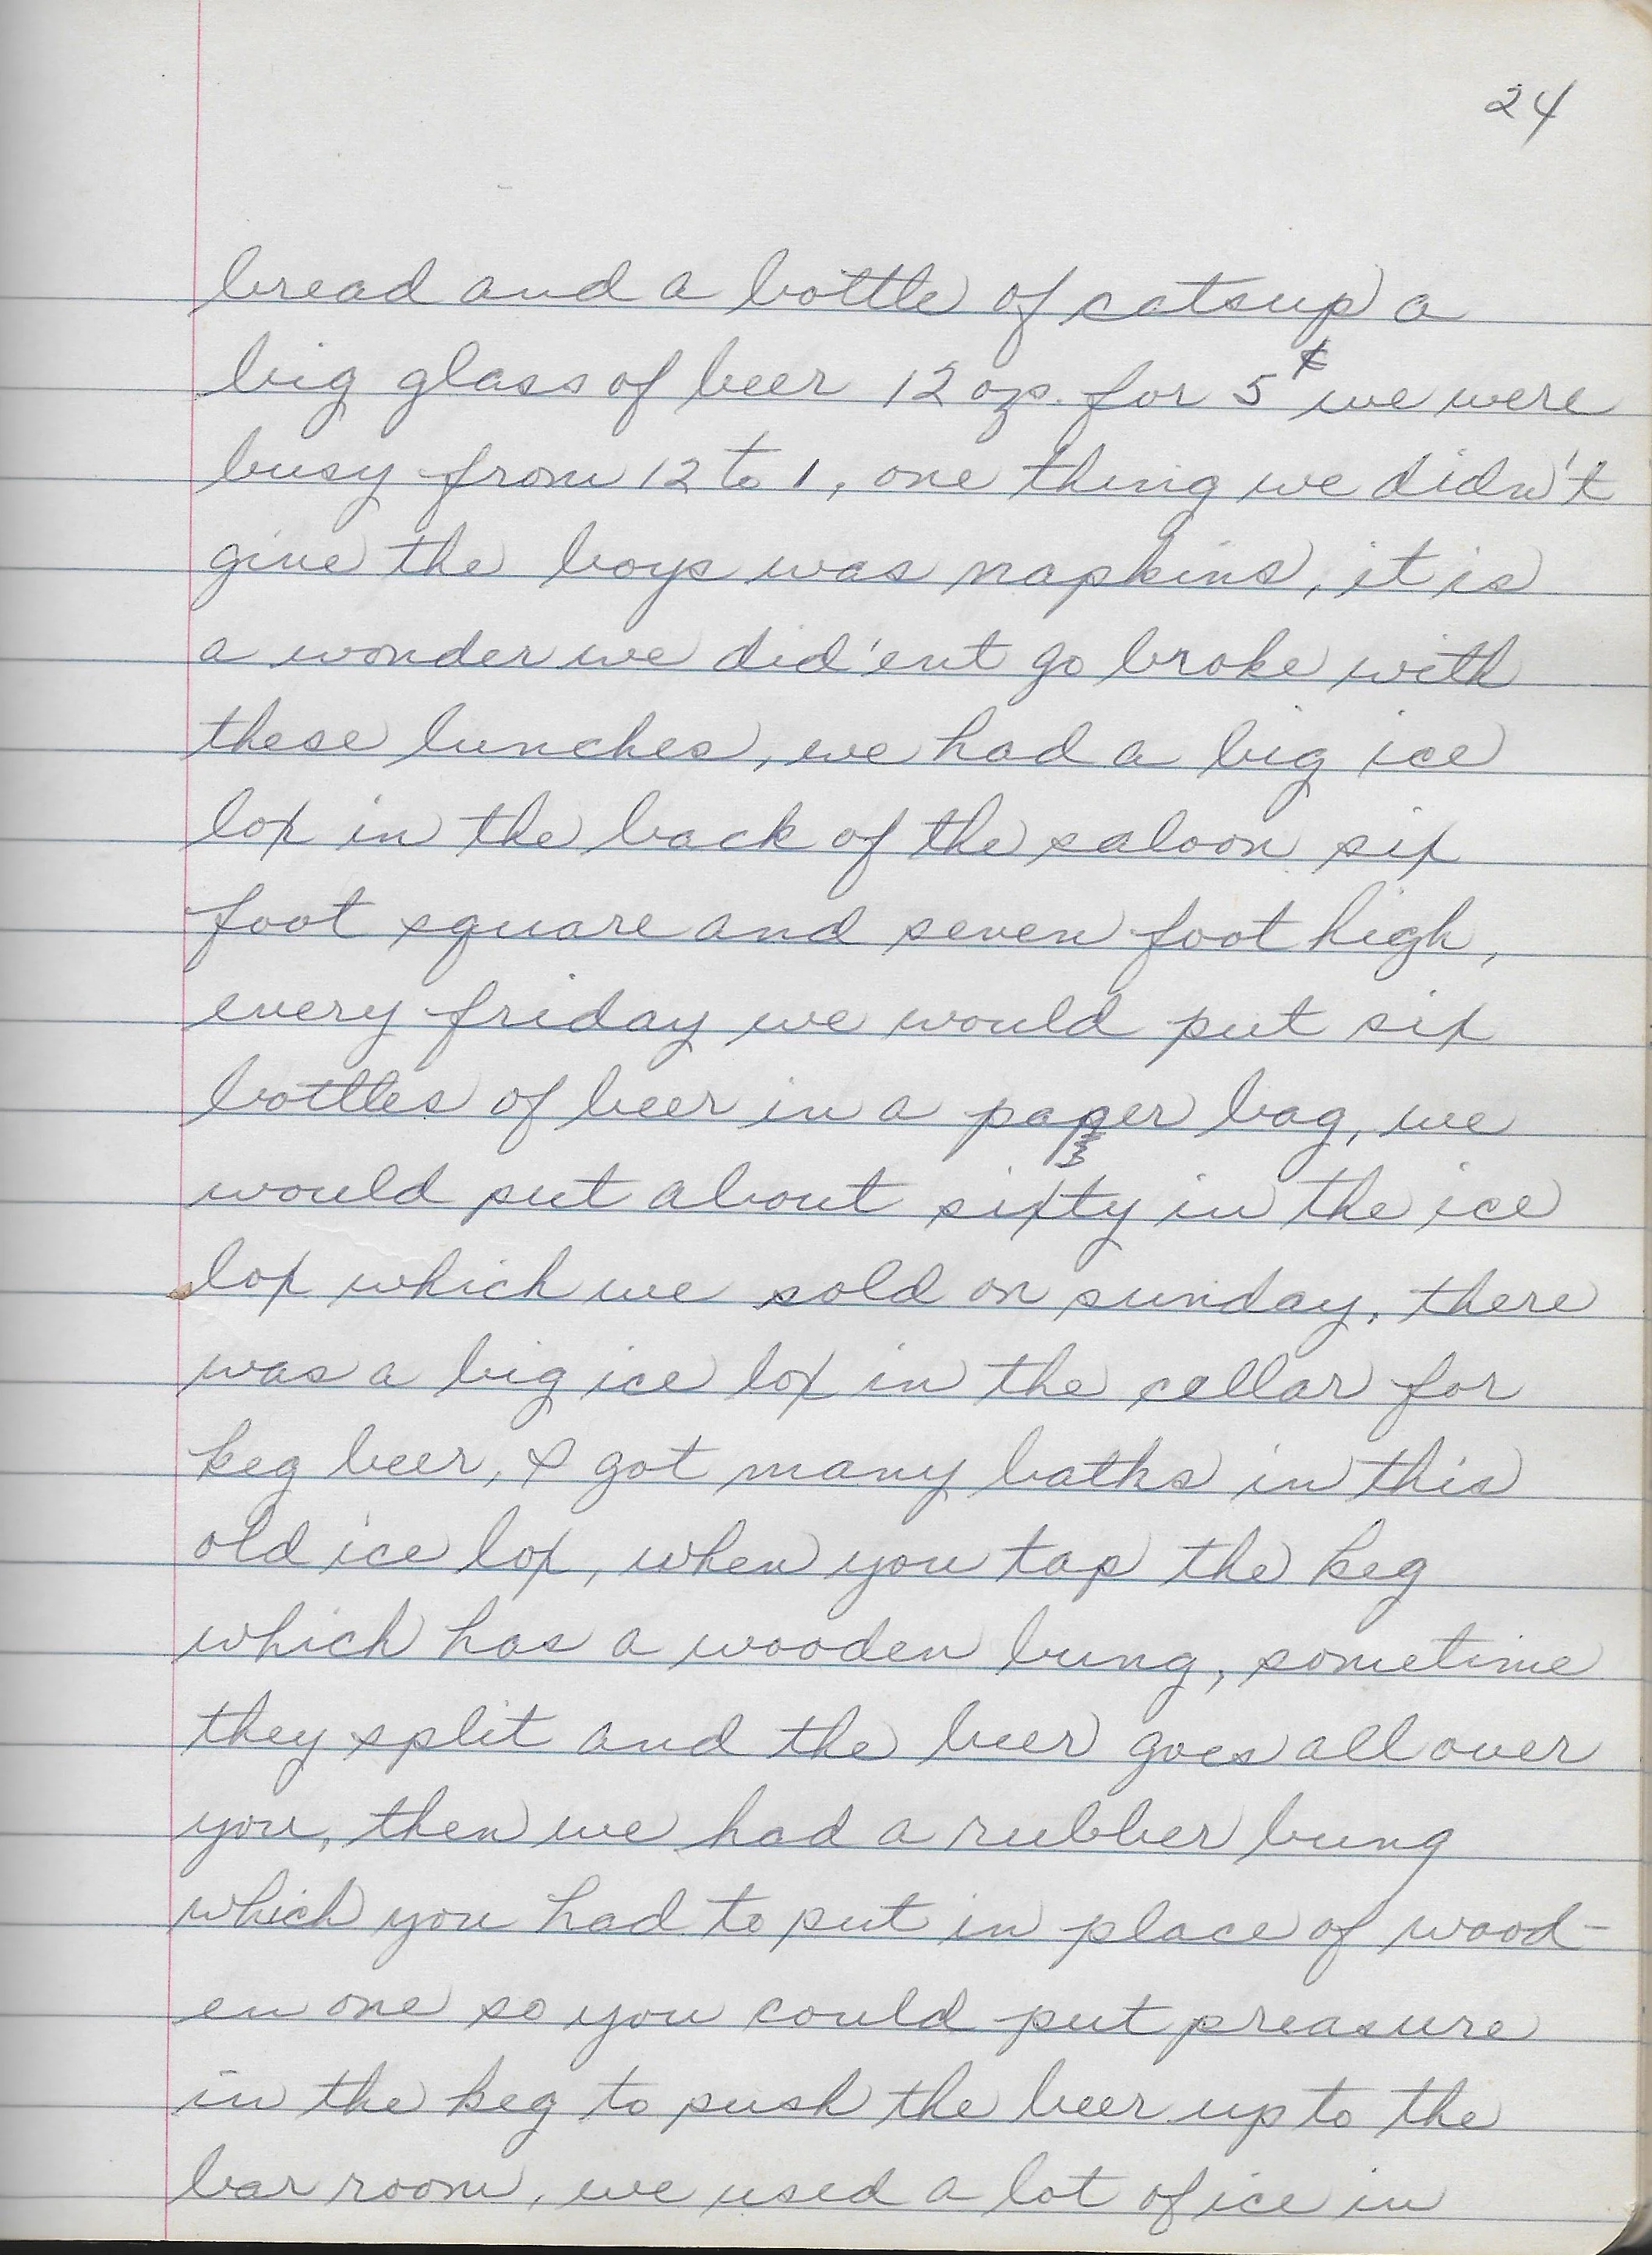 24
bread and a bottle of catsup a
big glass of beer 12 ozs. for 5¢ we were
busy from 12 to 1, one thing we didn't
give the boys was napkins, it is
a wonder we did'ent go broke with
these lunches, we had a big ice
box in the back of the saloon six
foot square and seven foot high,
every friday we would put six
bottles of beer in a paper bag, we
would put about sixty in the ice
box which we sold on sunday, there
was a big ice box in the cellar for
keg beer, I got many baths in this
old ice box, when you tap the keg
which has a wooden bung, sometime
they split and the beer goes all over
you, then we had a rubber bung
which you had to put in place of wood-
en one so you could put preasure
in the keg to push the beer up to the
bar room, we used a lot of ice in